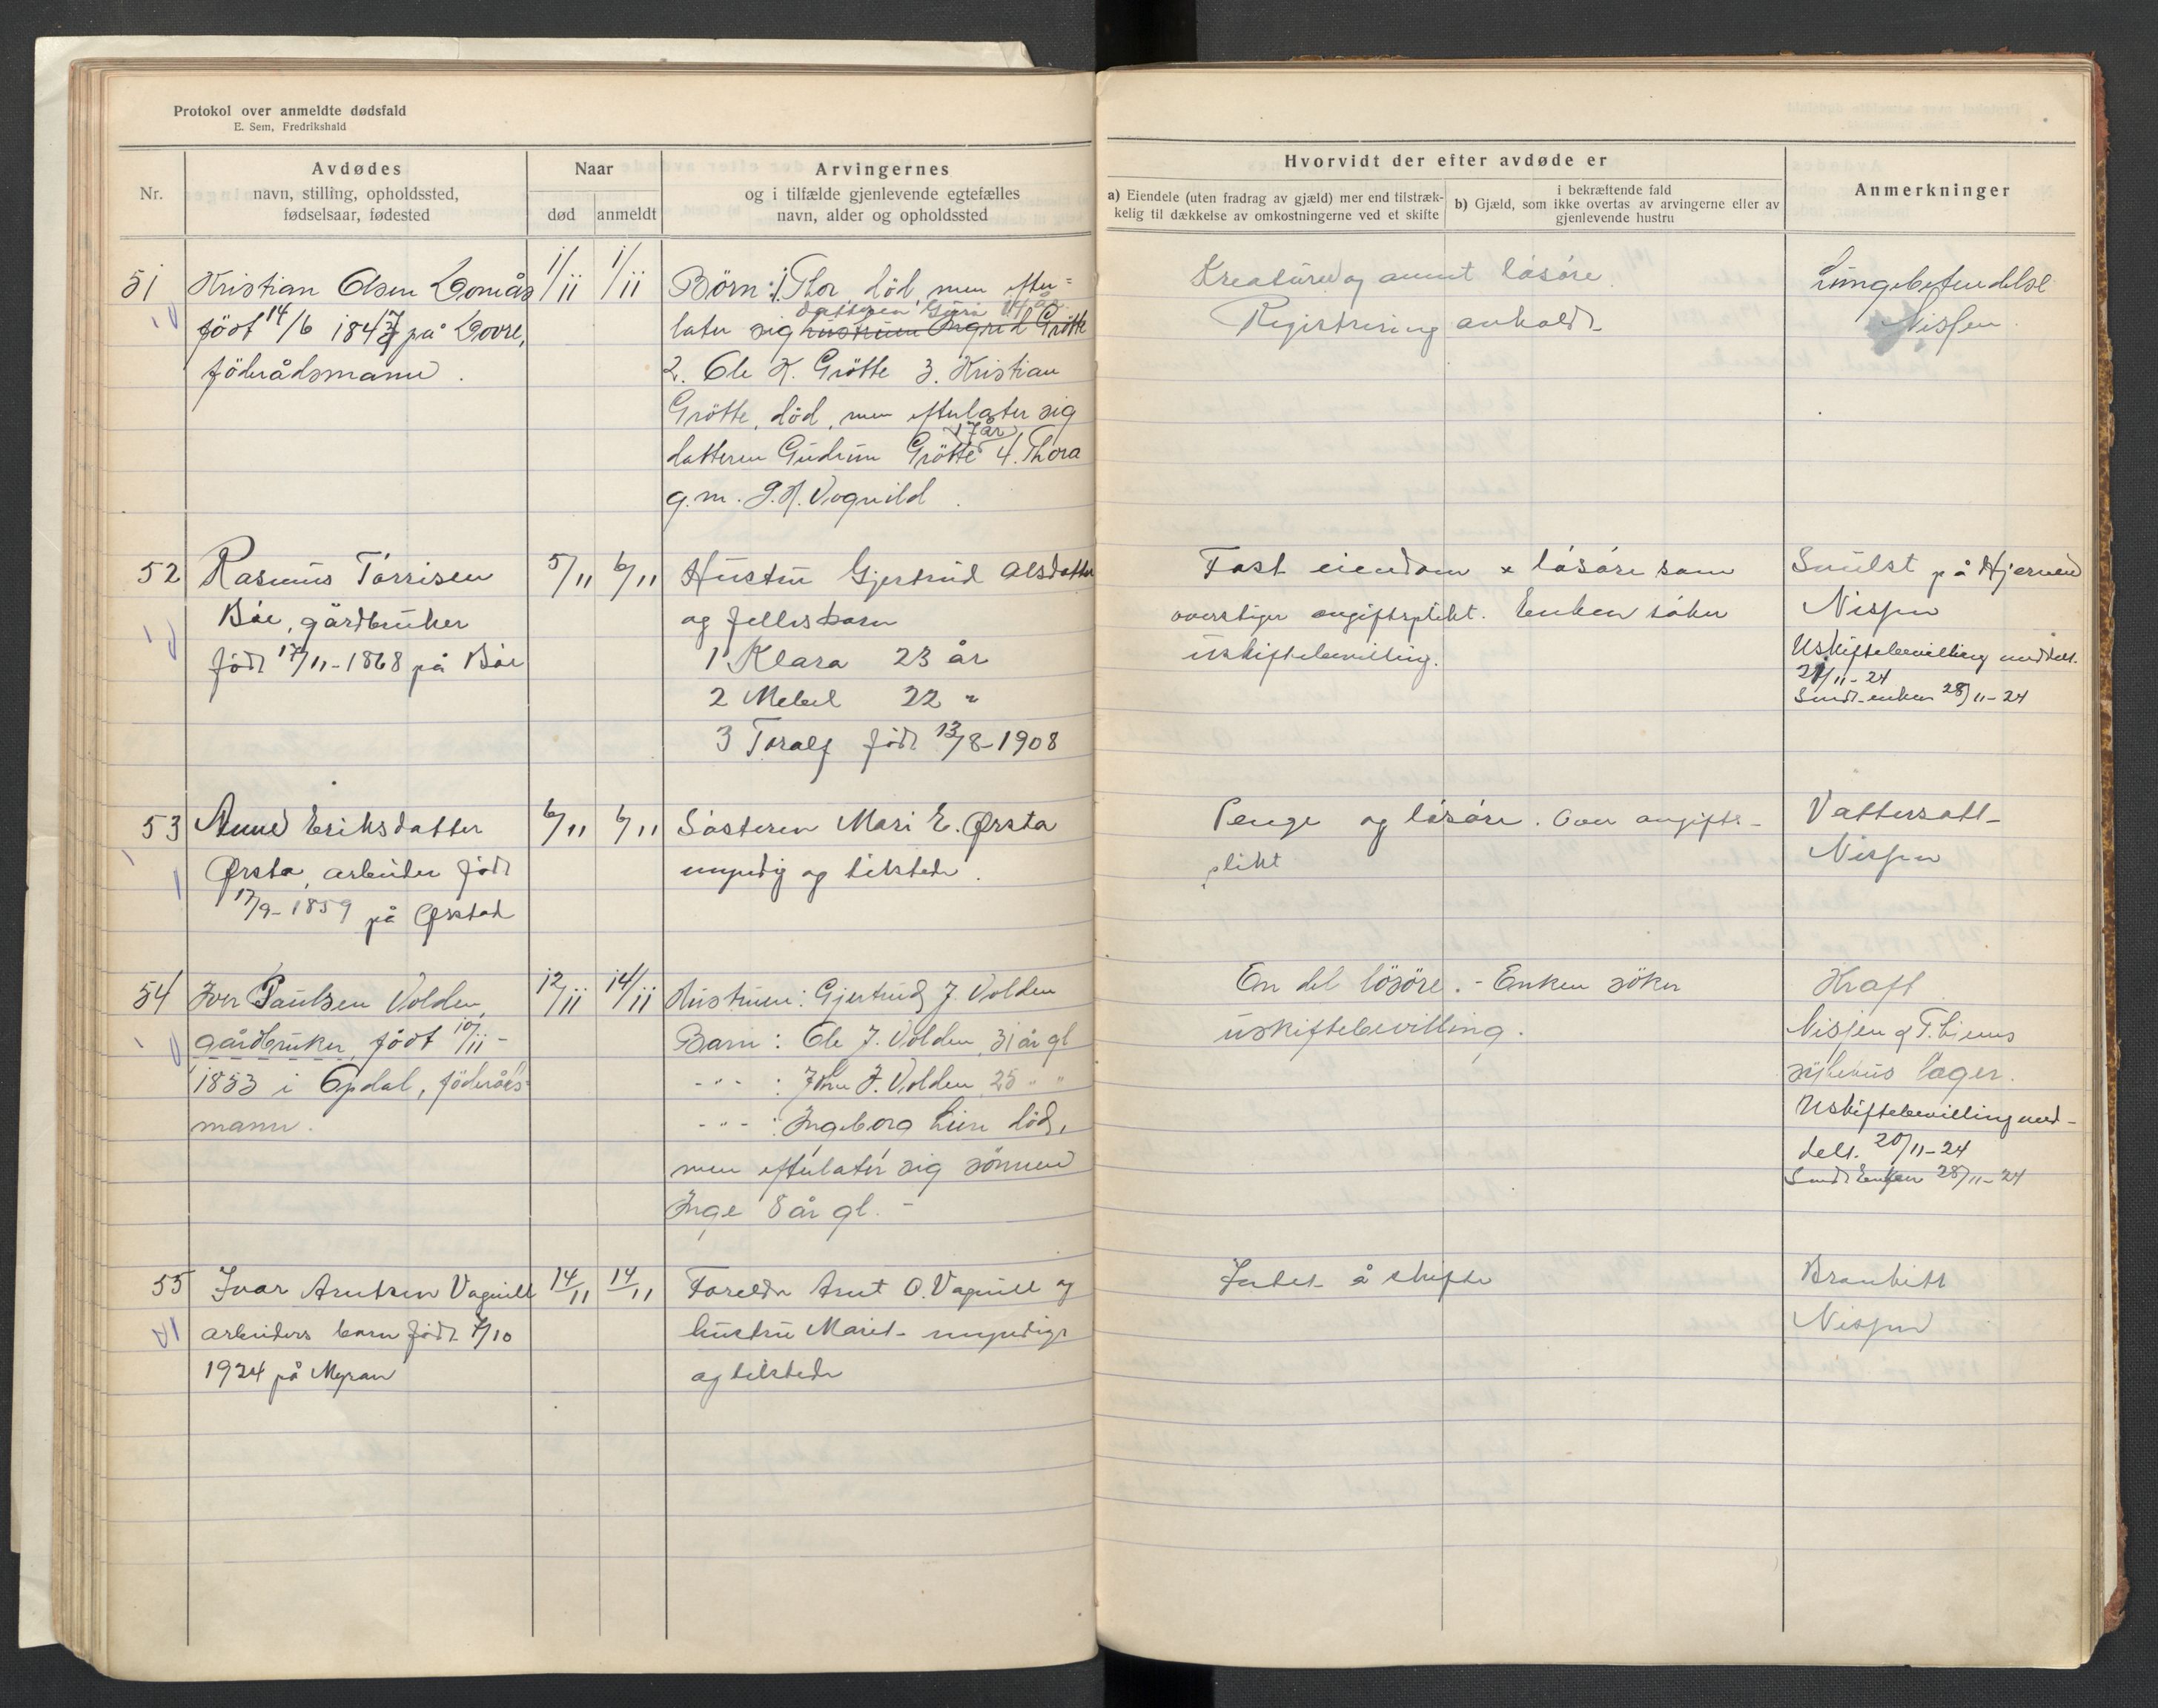 Protokol over anmeldte dødsfald
E. Sem, Fredrikshald
Nr.
Avdødes
navn, stilling, opholdssted,
fødselsaar, fødested
Naar
død
anmeldt
Arvingernes
og i tilfælde gjenlevende egtefælles
navn, alder og opholdssted
Hvorvidt der efter avdøde er
a) Eiendele (uten fradrag av gjæld) mer end tilstræk-
kelig til dækkelse av omkostningerne ved et skifte
i bekræftende fald
b) Gjæld, som ikke overtas av arvingerne eller av
gjenlevende hustru
Anmerkninger
51
Kristian Olsen Domås
født 14/6 1847 på Dovre,
föderådsmann.
1/11
1/11
Børn: 1. Thor död, men efter=
datteren Guri 14 år
later sig hustruen Ingrid Grötte
2. Ole K. Grötte 3. Kristian
Grötte, död, men efterlater sig
17 år
datteren Gudrun Grötte 4. Thora
g.m. J. H. Vognild.
Kreaturer og annet lösöre.
Registrering anholdt
Lungebetendelse
Nissen.
52
Rasmus Tørrisen
Bøe, gårdbruker
født 17/11-1868 på Bøe
5/11
6/11
Hustru Gjertrud Olsdatter
og fellesbarn
1 Klara 23 år
2 Mebel 22 "
3 Toralf født 13/8-1908
Fast eiendom & løsøre som
overstiger avgiftsplikt. Enken søker
uskiftebevilling.
Svulst på Hjernen
Nissen
Uskiftebevilling meddelt.
21/11-24
Sendt enken 28/11-24
53
Anne Eriksdatter
Ørsta, arbeider født
17/9-1859 på Ørstad
6/11
6/11
Søsteren Mari E. Ørsta
myndig og tilstede.
Penge og løsøre. Over avgifts-
plikt
Vattersott-
Nissen
54
Iver Paulsen Volden,
gårdbruker, født 10/11-
1853 i Opdal, föderåds=
mann.
12/11
14/11
Hustruen: Gjertrud J. Volden
Barn: Ole J. Volden, 31 år gl
-"- : John J. Volden, 25 " "
-"- : Ingeborg Lien död,
men efterlater sig sönnen
Inge 8 år gl. -
En del lösöre. - Enken söker
uskiftebevilling.
Kraft
Nissen & T.
sykehus lager.
Uskiftebevilling med-
delt. 20/11-24
Sendt Enken 28/11-24
55
Ivar Arntsen Vagnill
arbeiders barn født 7/10
1924 på Myran
14/11
14/11
Foreldre Arnt O. Vagnill og
hustru Marit - myndige
og tilstede
Intet å skifte
Nissen